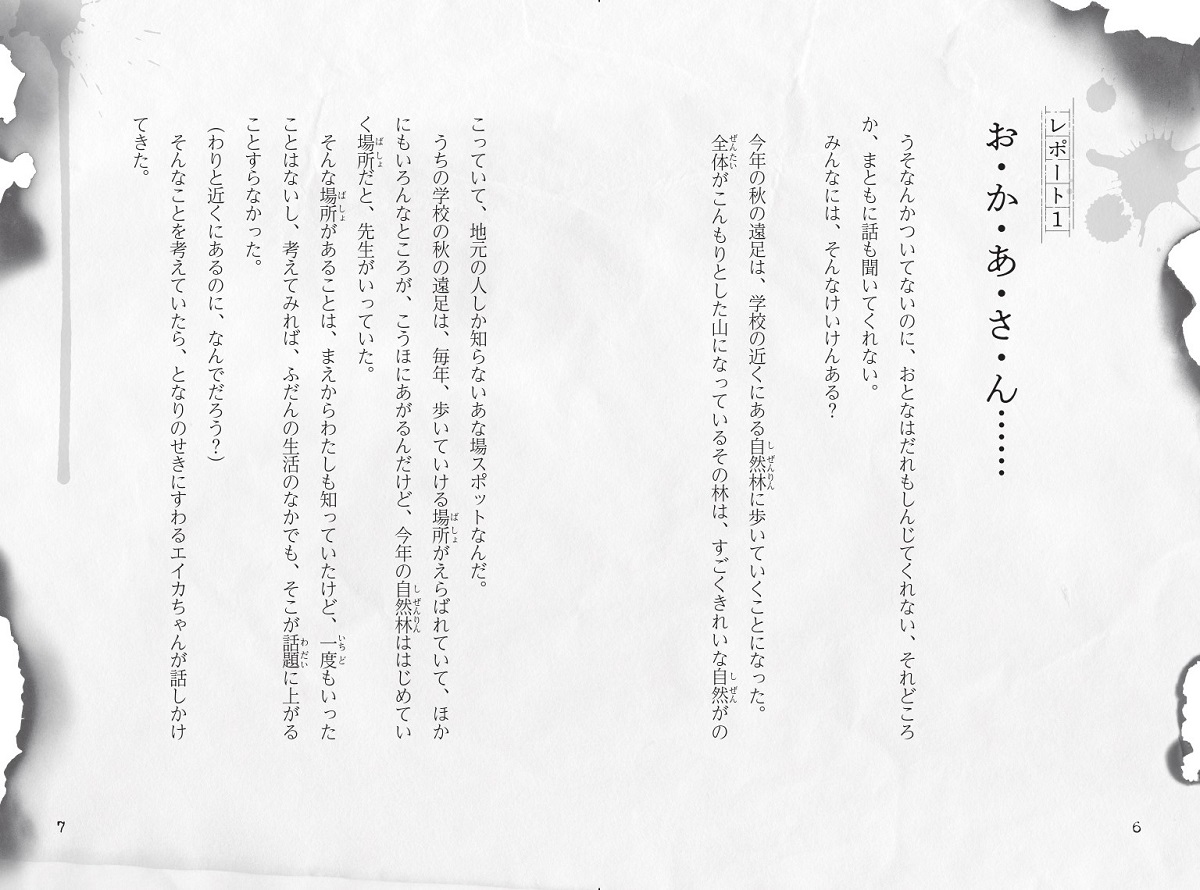 レポート1
お・か・あ・さ・ん……
うそなんかついてないのに、おとなはだれもしんじてくれない、それどころ
か、まともに話も聞いてくれない。
みんなには、そんなけいけんある？
今年の秋の遠足は、学校の近くにある自然林に歩いていくことになった。
全体がこんもりとした山になっているその林は、すごくきれいな自然がの
6
こっていて、地元の人しか知らないあな場スポットなんだ。
うちの学校の秋の遠足は、毎年、歩いていける場所がえらばれていて、ほか
にもいろんなところが、こうほにあがるんだけど、今年の自然林ははじめてい
く場所だと、先生がいっていた。
そんな場所があることは、まえからわたしも知っていたけど、一度もいった
ことはないし、考えてみれば、ふだんの生活のなかでも、そこが話題に上がる
ことすらなかった。
（わりと近くにあるのに、なんでだろう？）
そんなことを考えていたら、となりのせきにすわるエイカちゃんが話しかけ
てきた。
7